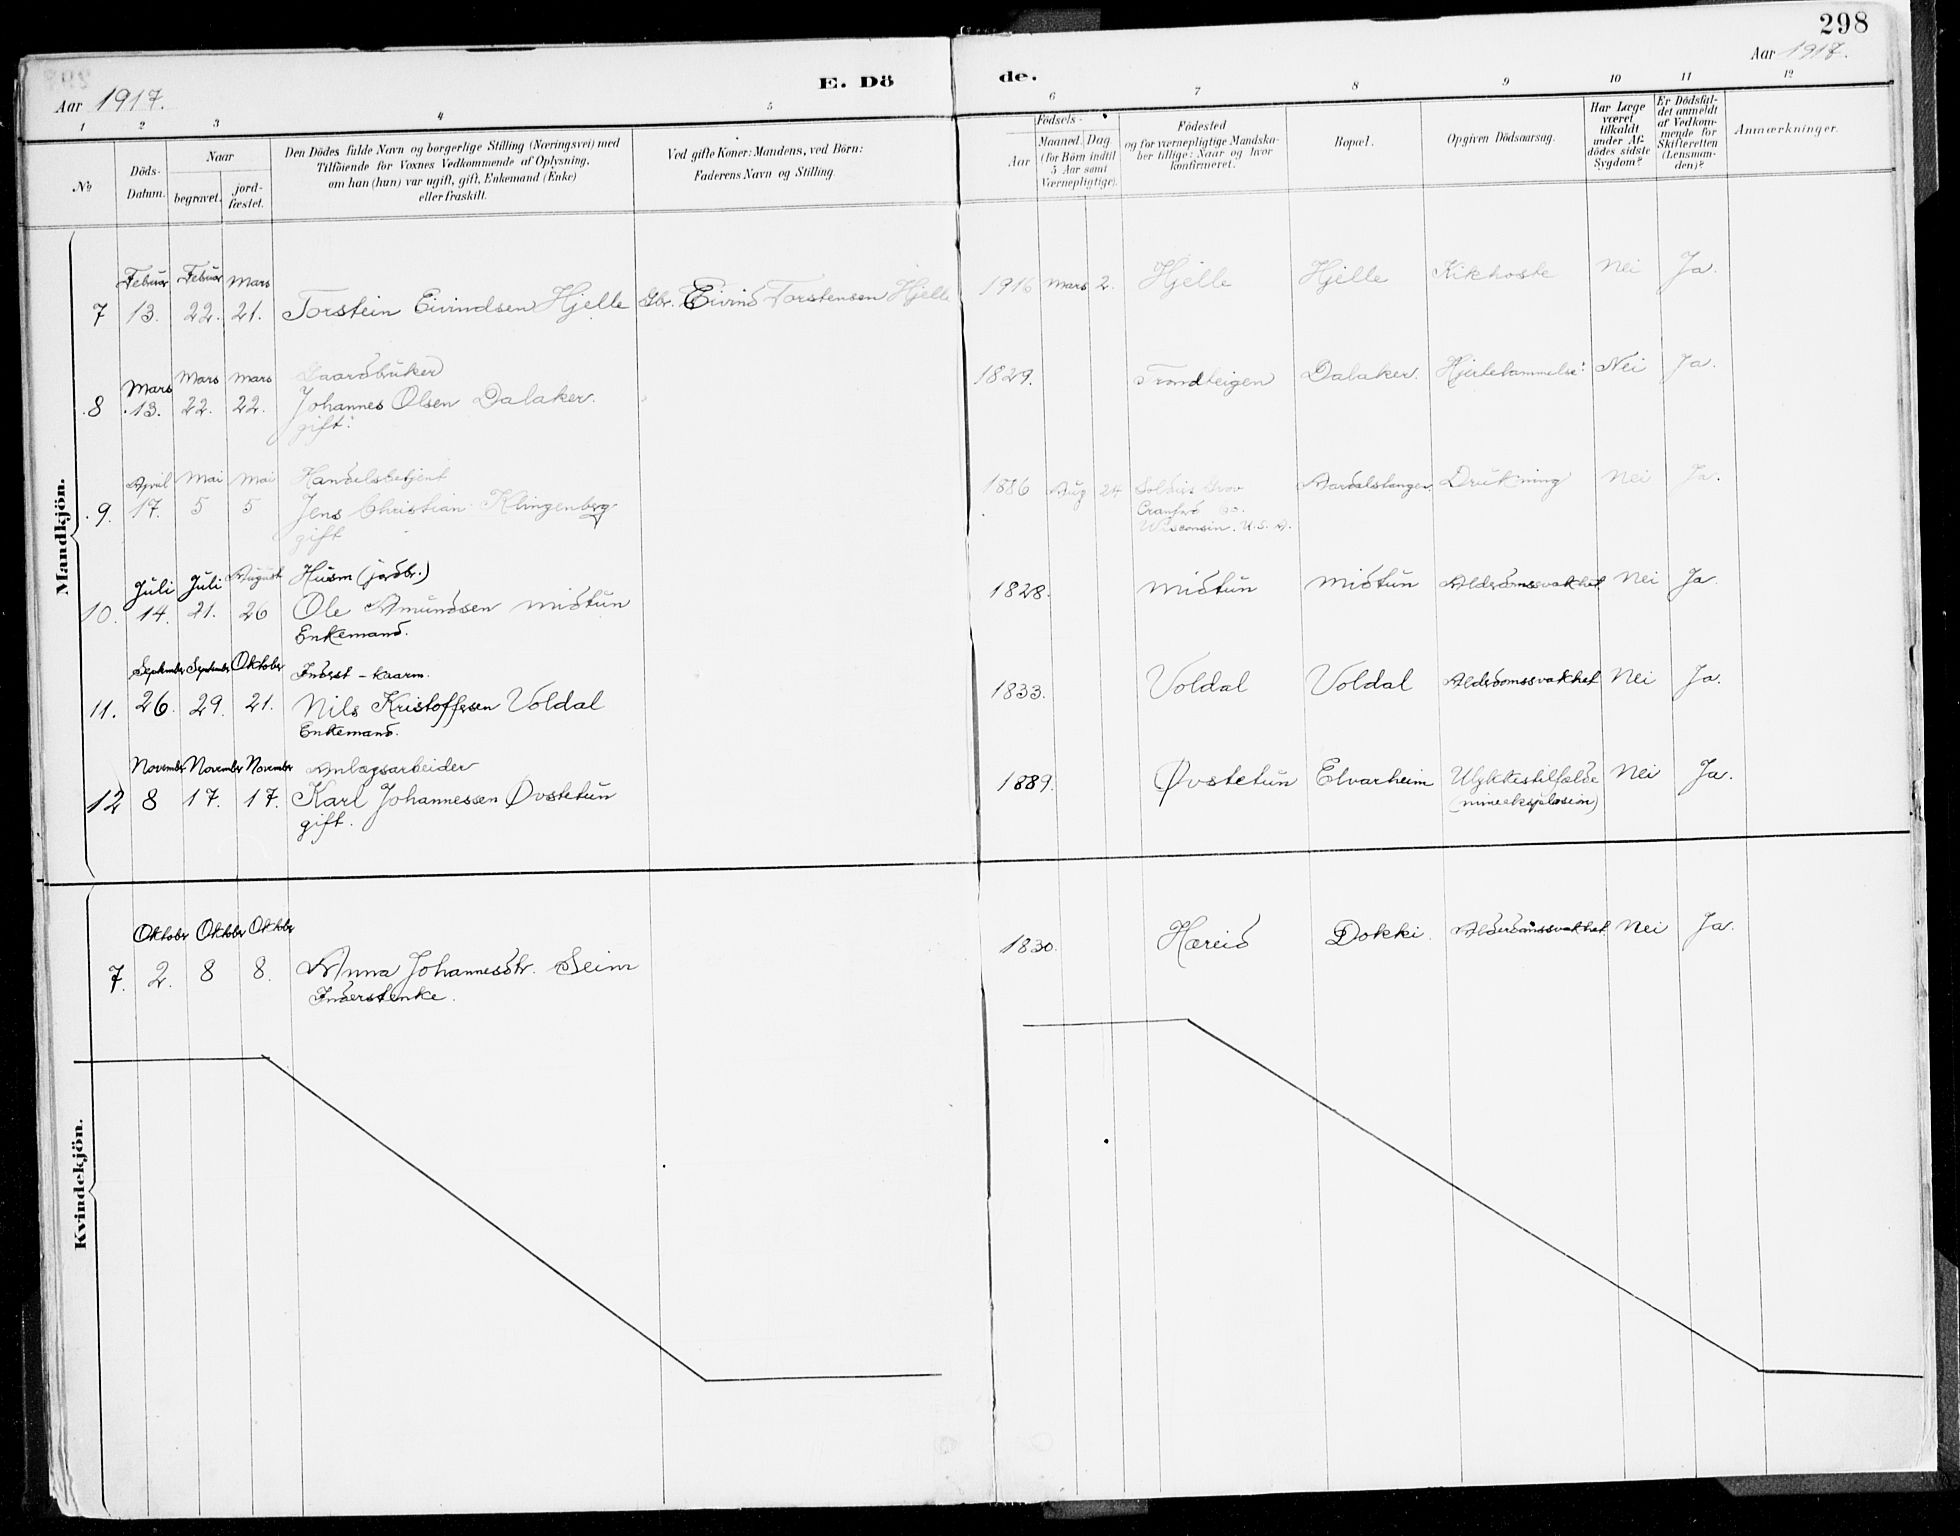 298
Aar 1917.
E. Dö
de.
Aar 1917.
1 2 3 4 5 6 7 8 9 10 11 12
№
Döds-
Datum.
Naar
begravet.
jord-
fæstet.
Den Dödes fulde Navn og borgerlige Stilling (Næringsvei) med
Tilföiende for Voxnes Vedkommende af Oplysning,
om han (hun) var ugift, gift, Enkemand (Enke)
eller fraskilt.
Ved gifte Koner: Mandens, ved Börn:
Faderens Navn og Stilling.
Födsels-
Aar
Maaned. Dag
(for Börn indtil
5 Aar samt
Værnepligtige).
Födested
og for værnepligtige Mandska-
ber tillige: Naar og hvor
konfirmeret.
Bopæl.
Opgiven Dödsaarsag.
Har Læge
været
tilkaldt
under Af-
dödes sidste
Sygdom?
Er Dödsfal-
det anmeldt
af Vedkom-
mende for
Skifteretten
(Lensman-
den)?
Anmærkninger.
Mandkjön.
Februar Februar Mars
7 13. 22. 21. Torstein Eivindsen Hjelle Gbr. Eivind Torstensen Hjelle 1916 Mars 2. Hjelle Hjelle Kikhoste Nei Ja.
Mars Mars Mars Gaardbruker
8 13. 22. 22. Johannes Olsen Dalaker. 1829. Trondteigen Dalaker. Hjertelammelse. Nei Ja.
gift.
April Mai Mai Handelsbetjent
9. 17. 5 5 Jens Christian Klingenberg 1886 Aug 24 Soldiers Grov Aardalstangen Drukning Nei Ja.
gift
Cranfrd Co.
Wisconsin. U.S.A.
Juli Juli August Husm (jordbr.)
10. 14. 21. 26 Ole Amundsen Midtun 1828. Midtun Midtun Alderdomssvakhet Nei Ja.
Enkemand.
September September Oktober Inderst - kaarm.
11. 26. 29. 21. Nils Kristoffersen Voldal 1833. Voldal Voldal Alderdomssvakhet Nei Ja.
Enkemand.
November November November Anlægsarbeider
12 8 17. 17. Karl Johannessen Øvstetun 1889. Øvstetun Elvarheim Ulykkestilfælde Nei Ja.
gift.
(mineeksplosion)
Kvindekjön.
Oktober Oktober Oktober
7. 2. 8 8. Anna Johannesdtr. Seim 1830. Hæreid Dokki. Alderdomssvakhet Nei Ja.
Inderstenke.